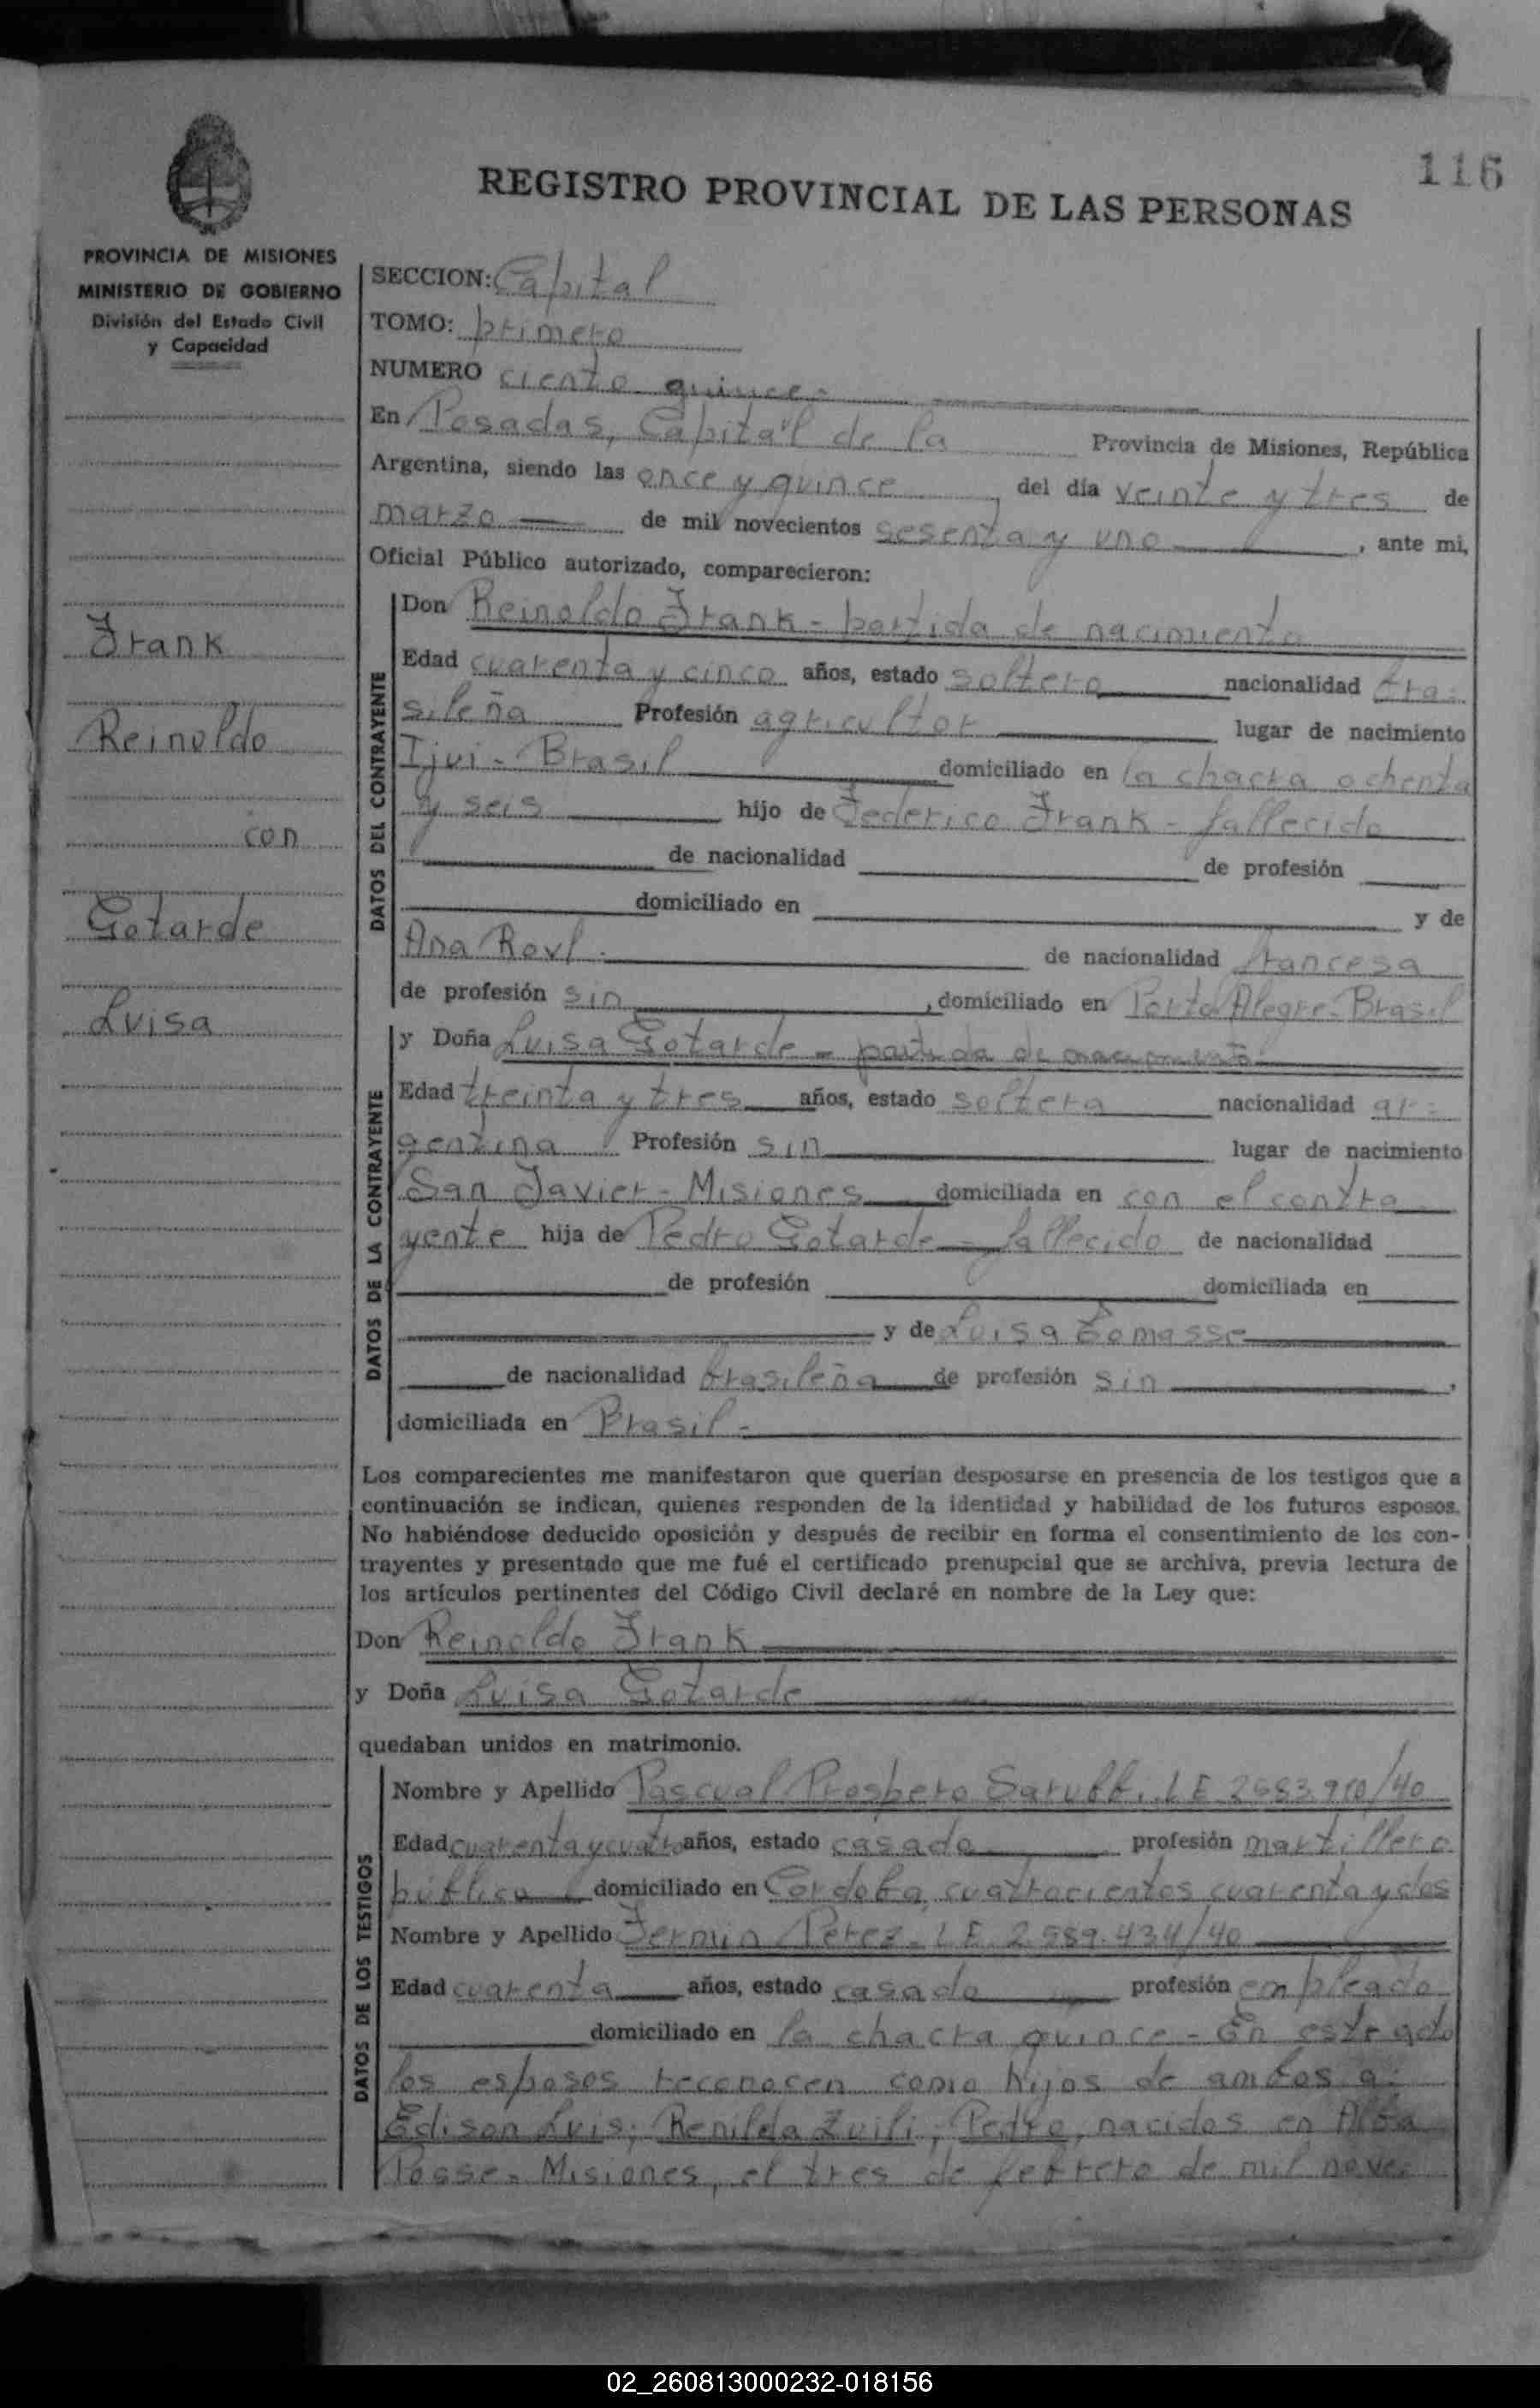 116
REGISTRO PROVINCIAL DE LAS PERSONAS
PROVINCIA DE MISIONES
MINISTERIO DE GOBIERNO
División del Estado Civil
y Capacidad
Frank
Reinoldo
con
Gotarde
Luisa
SECCION: Capital
TOMO: primero
NUMERO ciento quince -
En Posadas, Capital de la Provincia de Misiones, República
Argentina, siendo las once y quince, del día veinte y tres de
marzo de mil novecientos sesenta y uno, ante mi,
Oficial Público autorizado, comparecieron:
DATOS DEL CONTRAYENTE
Don Reinoldo Frank - partida de nacimiento
Edad cuarenta y cinco años, estado soltero nacionalidad bra-
sileña Profesión agricultor lugar de nacimiento
Ijui - Brasil domiciliado en la chacra ochenta
y seis hijo de Federico Frank - fallecido
de nacionalidad de profesión
domiciliado en y de
Ana - de nacionalidad francesa
de profesión sin, domiciliado en Porto Alegre - Brasil
DATOS DE LA CONTRAYENTE
y Doña Luisa Gotarde - partida de nacimiento -
Edad treinta y tres años, estado soltera nacionalidad ar-
gentina Profesión sin lugar de nacimiento
San Javier - Misiones domiciliada en con el contra
yente hija de Pedro Gotarde - fallecido de nacionalidad
de profesión domiciliada en
y de Luisa
de nacionalidad brasileña de profesión sin,
domiciliada en Brasil -
Los comparecientes me manifestaron que querían desposarse en presencia de los testigos que a
continuación se indican, quienes responden de la identidad y habilidad de los futuros esposos.
No habiéndose deducido oposición y después de recibir en forma el consentimiento de los con-
trayentes y presentado que me fué el certificado prenupcial que se archiva, previa lectura de
los artículos pertinentes del Código Civil declaré en nombre de la Ley que:
Don Reinoldo Frank
y Doña Luisa Gotarde
quedaban unidos en matrimonio.
DATOS DE LOS TESTIGOS
Nombre y Apellido Pascual Prospero Sarubbi. L E
Edad cuarenta y cuatro años, estado casado profesión martillero
público domiciliado en Cordoba cuatrocientos cuarenta y dos
Nombre y Apellido Fermin Perez - L E 2.589.434/40
Edad cuarenta años, estado casado profesión empleado
domiciliado en la chacra quince - En este acto
los esposos reconocen como hijos de ambos a:
Edison Luis; Renilda Zuili; Pedro, nacidos en Alba
Posse - Misiones, el tres de febrero de mil nove
02_260813000232-018156